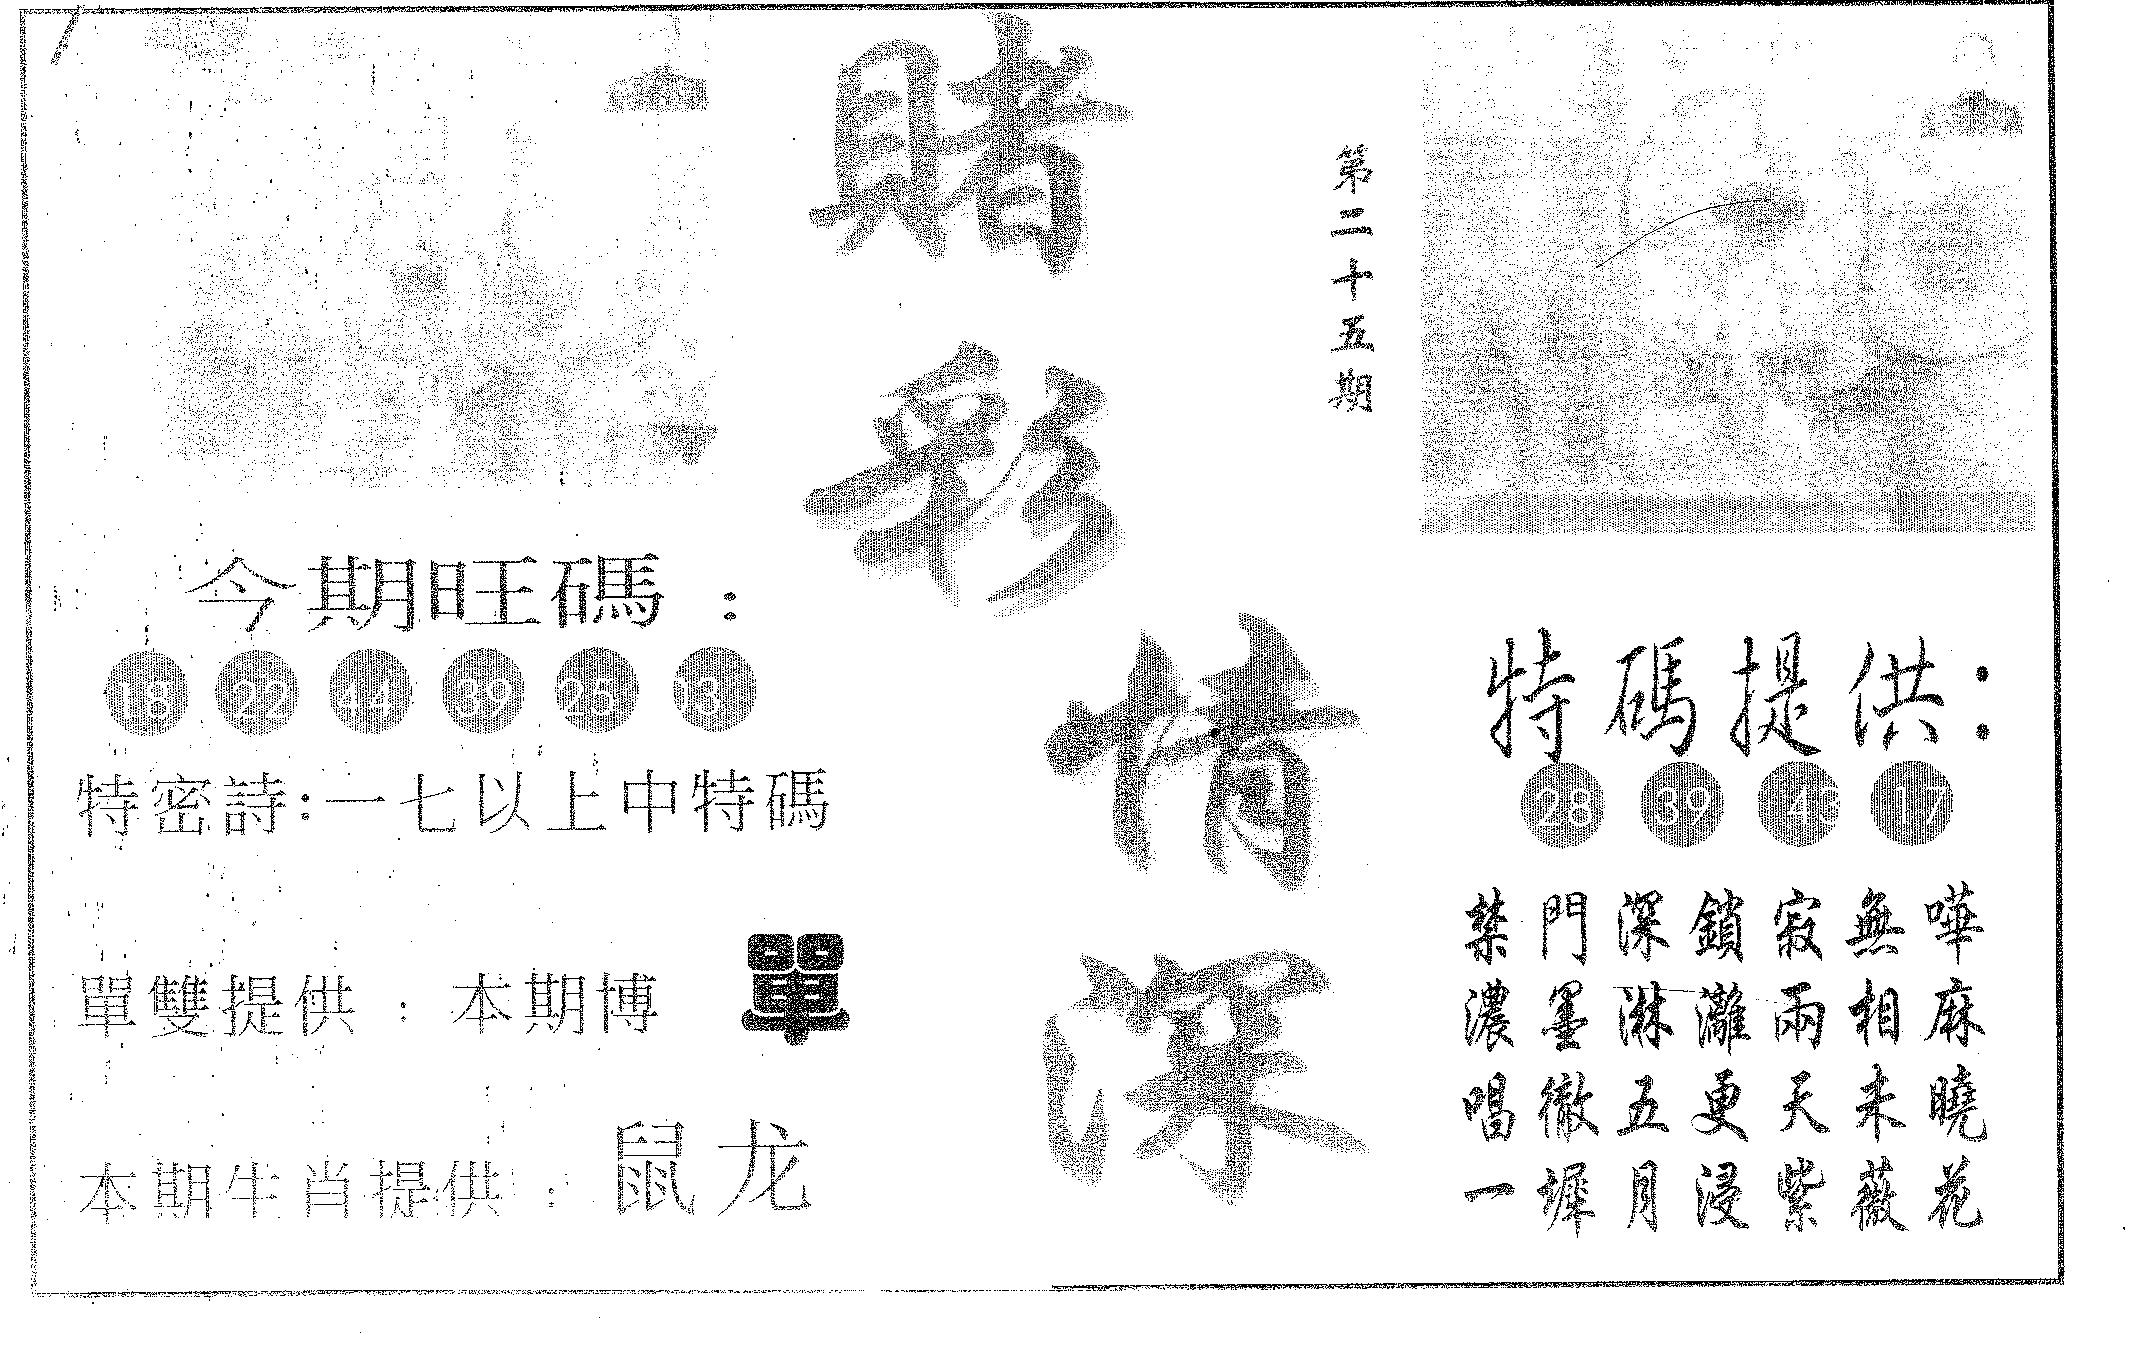 賭彩情深
第二十五期
今期旺碼：
18 22 44 39 25 03
特密詩：一七以上中特碼
單雙提供：本期博 單
本期生肖提供：鼠龙
特碼提供：
28 39 43 17
禁門深鎖寂無嘩
濃墨淋灕兩相麻
唱徹五更天未曉
一墀月浸紫薇花